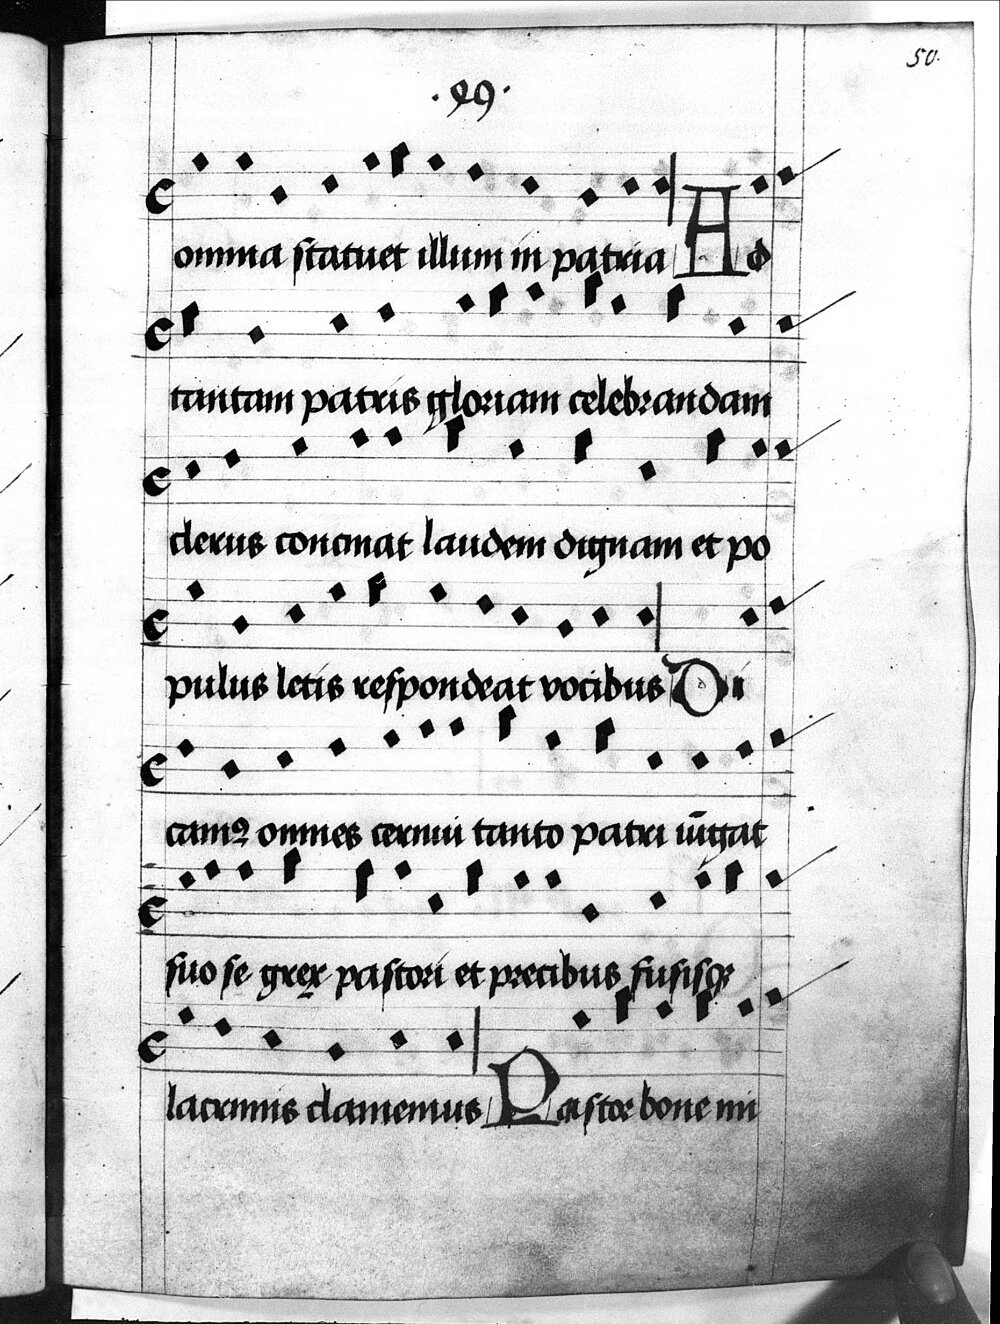 50.
·49·
omnia statuet illum in patria Ad
tantam patris gloriam celebrandam
clerus concinat laudem dignam et po
pulus letis respondeat vocibus Di
camꝰ omnes cernui tanto patri iūgat
suo se grex pastori et precibus fusisqꝫ
lacrimis clamemus Pastor bone mi